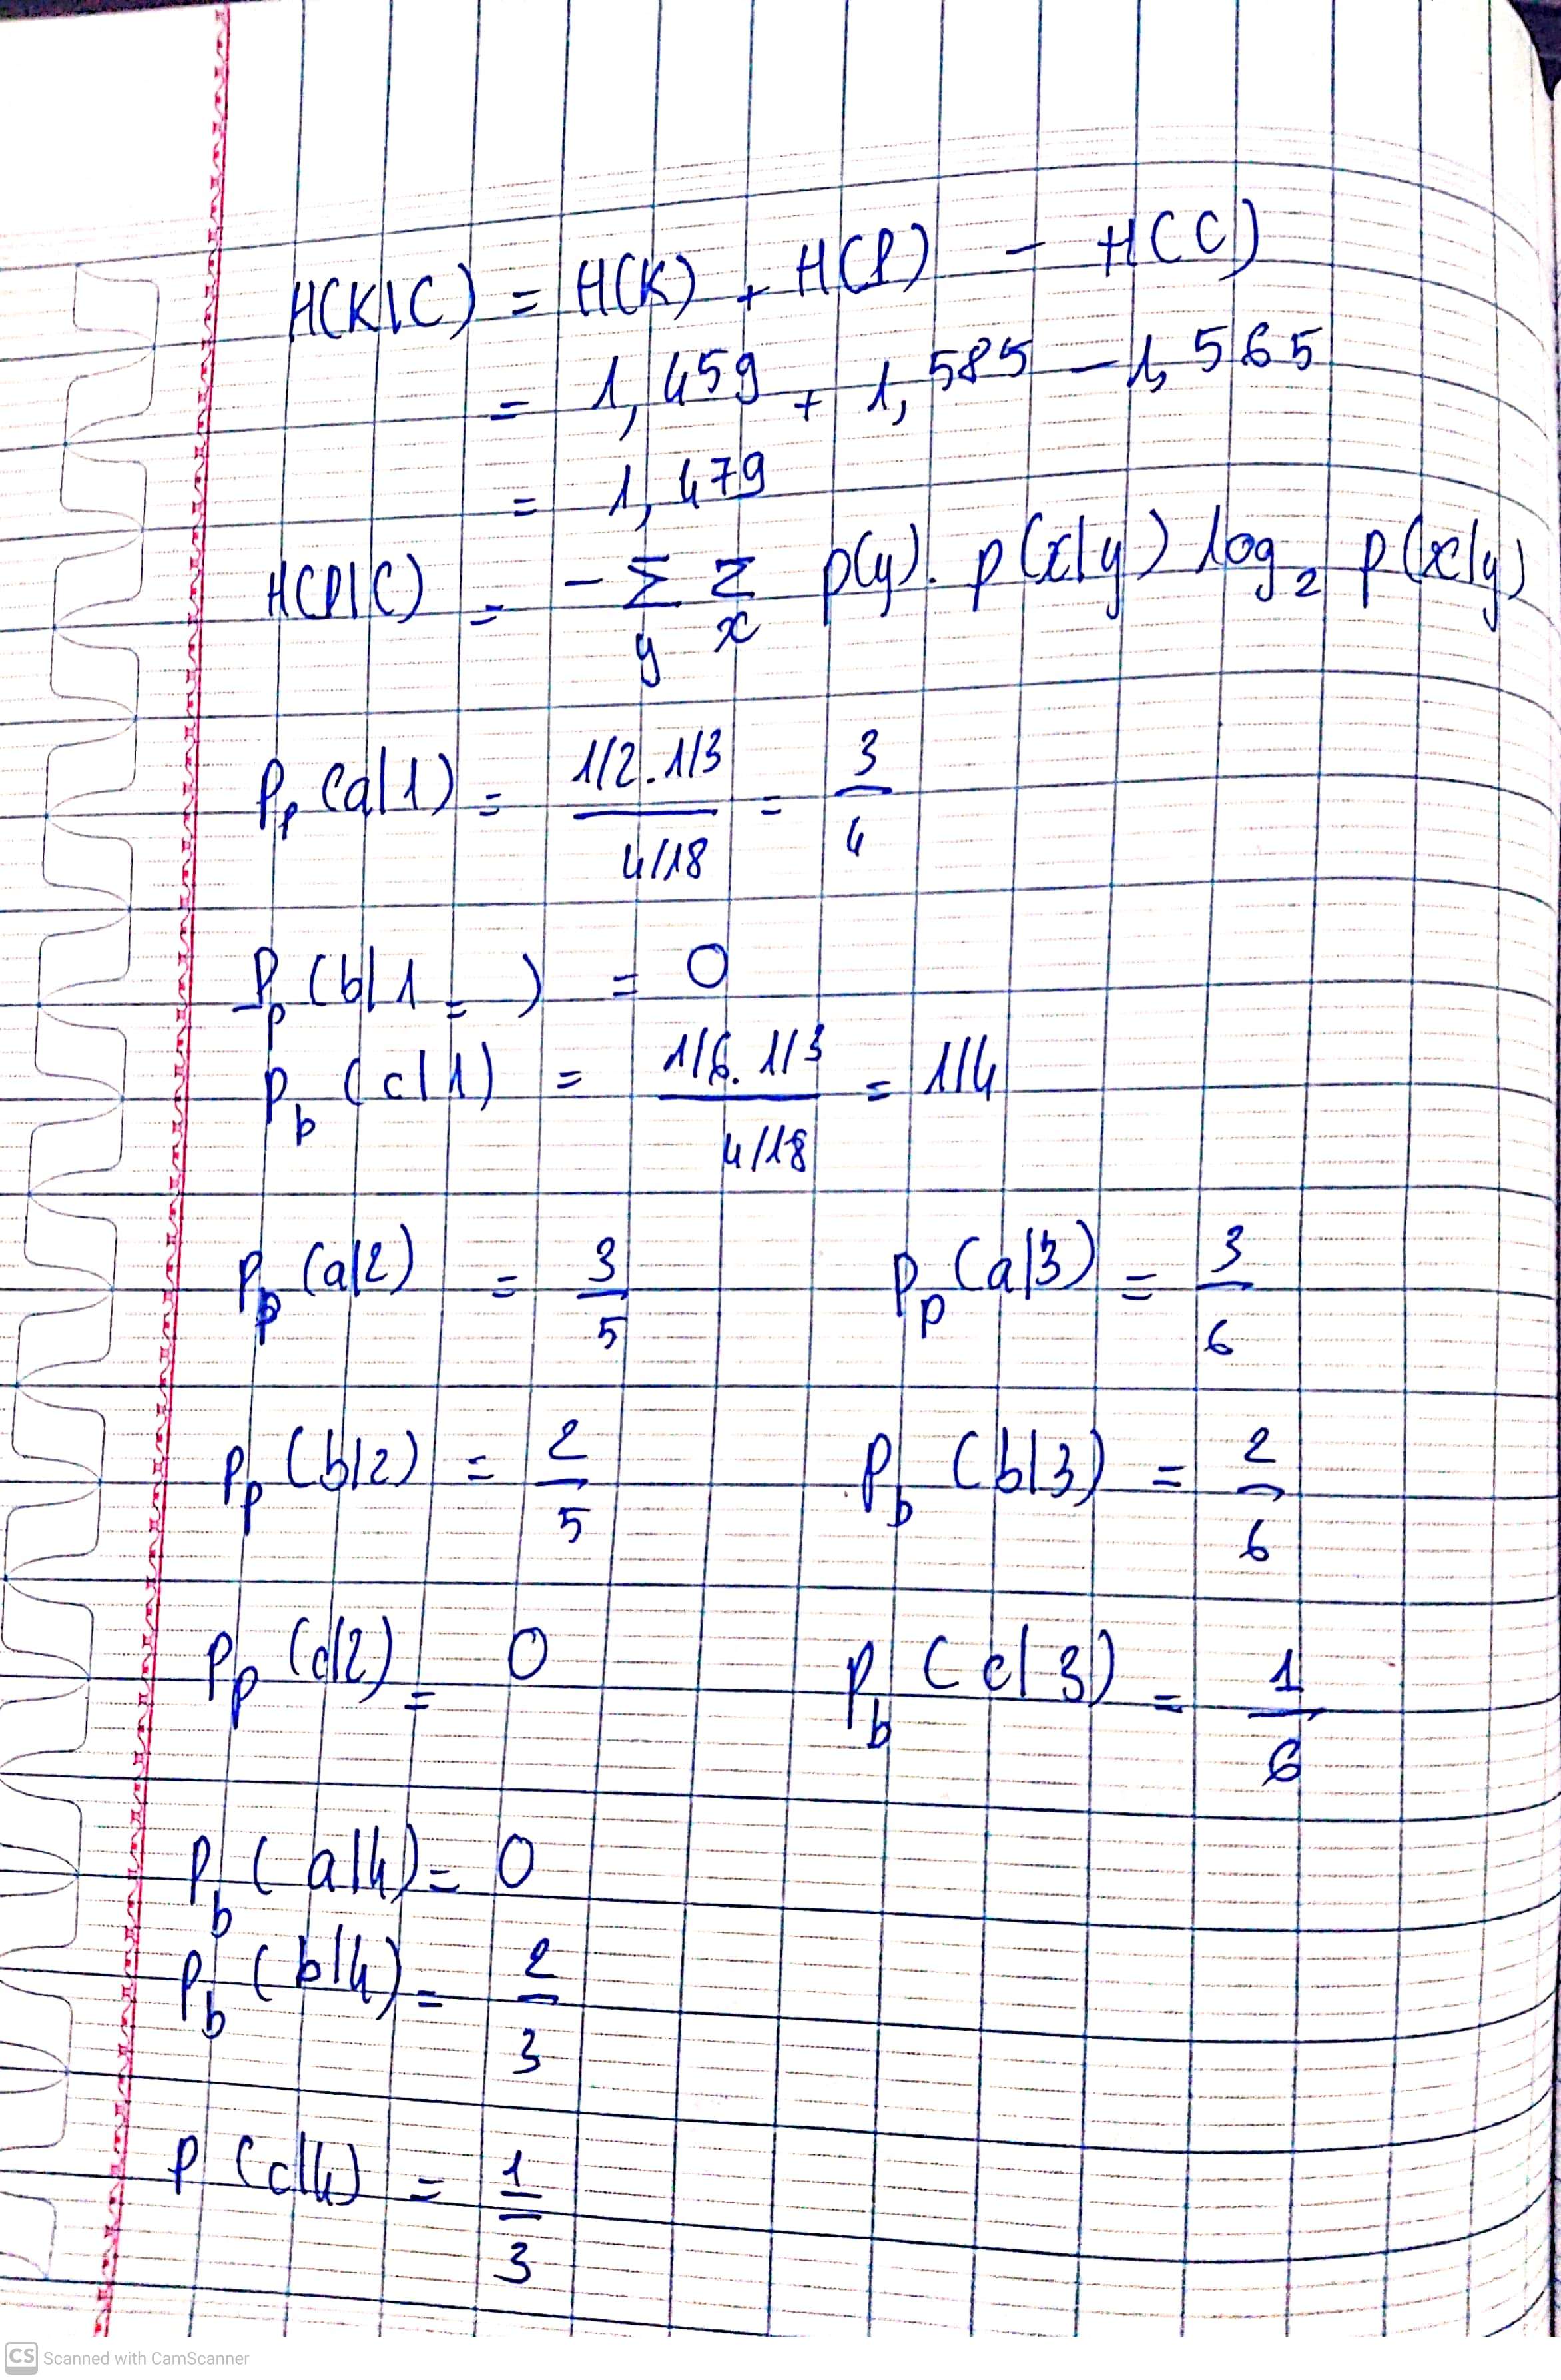 H(K|C) = H(K) + H(P) - H(C)
= 1,459 + 1,585 - 1,565
= 1,479
H(P|C) = - Σ_y Σ_x p(y). p(x|y) log_2 p(x|y)
P_p (a|1) = (1/2 . 1/3) / (4/18) = 3/4
P_p (b|1 = ) = 0
P_b (c|1) = (1/6 . 1/3) / (4/18) = 1/4
P_p (a|2) = 3/5 P_p (a|3) = 3/6
P_p (b|2) = 2/5 P_b (b|3) = 2/6
P_p (c|2) = 0 P_b (c|3) = 1/6
P_b (a|4) = 0
P_b (b|4) = 2/3
P (c|4) = 1/3
CS Scanned with CamScanner